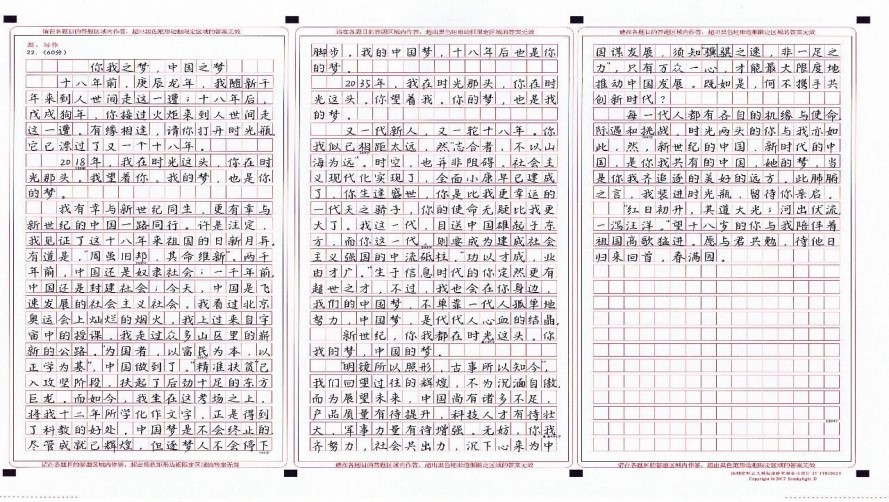 请在各题目的答题区域内作答，超出黑色矩形边框限定区域的答案无效
四、写作
22.（60分）
你我之梦，中国之梦
十八年前，庚辰龙年，我随新千
年来到人世间走这一遭；十八年后，
戊戌狗年，你接过火炬来到人世间走
这一遭。有缘相逢，请你打开时光瓶，
它已漂过了又一个十八年。
2018年，我在时光这头，你在时
光那头。我望着你，我的梦，也是你
的梦。
我有幸与新世纪同生，更有幸与
新世纪的中国一路同行。许是注定，
我见证了这十八年来祖国的日新月异。
有道是，“周虽旧邦，其命维新”，两千
年前，中国还是奴隶社会；一千年前，
中国还是封建社会；今天，中国是飞
速发展的社会主义社会，我看过北京
奥运会上灿烂的烟火，我上过来自宇
宙中的授课，我走过众多山区里的崭
新的公路。“为国者，以富民为本，以
正学为基”，中国做到了。“精准扶贫”已
入攻坚阶段，扶起了后劲十足的东方
巨龙。而如今，我坐在这考场之上，
将我十二年所学化作文字，正是得到
了科教的好处。中国梦是不会终止的，
尽管成就已辉煌，但逐梦人不会停下
请在各题目的答题区域内作答，超出黑色矩形边框限定区域的答案无效
请在各题目的答题区域内作答，超出黑色矩形边框限定区域的答案无效
脚步，我的中国梦，十八年后也是你
的梦。
2035年，我在时光那头，你在时
光这头。你望着我，你的梦，也是我
的梦。
又一代新人，又一轮十八年。你
我似已相距太远，然“志合者，不以山
海为远”。时空，也并非阻碍。社会主
义现代化实现了，全面小康早已建成
了，你生逢盛世，你是比我更幸运的
一代天之骄子，你的使命无疑比我更
大了。我这一代，目送中国雄起于东
方，而你这一代，则要成为建成社会
主义强国的中流砥柱。“功以才成，业
由才广。”生于信息时代的你定然更有
超世之才，不过，我也会在你身边，
我们的中国梦，不单靠一代人孤单地
努力，中国梦，是代代人心血的结晶。
新世纪，你我都在时光这头。你
我的梦，中国的梦。
“明镜所以照形，古事所以知今”，
我们回望过往的辉煌，不为沉湎自傲，
而为展望未来，中国尚有诸多不足，
产品质量有待提升，科技人才有待壮
大，军事力量有待增强。无妨，你我
齐努力，社会共出力，沉下心来为中
请在各题目的答题区域内作答，超出黑色矩形边框限定区域的答案无效
请在各题目的答题区域内作答，超出黑色矩形边框限定区域的答案无效
国谋发展，须知“骐骥之速，非一足之
力”，只有万众一心，才能最大限度地
推动中国发展。既如是，何不携手共
创新时代？
每一代人都有各自的机缘与使命、
际遇和挑战。时光两头的你与我亦如
此，然，新世纪的中国，新时代的中
国，是你我共有的中国，她的梦，当
是你我齐追逐的美好的远方，此肺腑
之言，我装进时光瓶，留待你亲启。
“红日初升，其道大光；河出伏流，
一泻汪洋。”望十八岁的你与我陪伴着
祖国高歌猛进。愿与君共勉，待他日
归来回首，春满园。
请在各题目的答题区域内作答，超出黑色矩形边框限定区域的答案无效